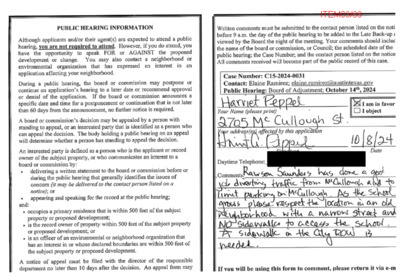 ITEM03/33
PUBLIC HEARING INFORMATION
Although applicants and/or their agent(s) are expected to attend a public
hearing, you are not required to attend. However, if you do attend, you
have the opportunity to speak FOR or AGAINST the proposed
development or change. You may also contact a neighborhood or
environmental organization that has expressed an interest in an
application affecting your neighborhood.
During a public hearing, the board or commission may postpone or
continue an application's hearing to a later date or recommend approval
or denial of the application. If the board or commission announces a
specific date and time for a postponement or continuation that is not later
than 60 days from the announcement, no further notice is required.
A board or commission's decision may be appealed by a person with
standing to appeal, or an interested party that is identified as a person who
can appeal the decision. The body holding a public hearing on an appeal
will determine whether a person has standing to appeal the decision.
An interested party is defined as a person who is the applicant or record
owner of the subject property, or who communicates an interest to a
board or commission by:
• delivering a written statement to the board or commission before or
during the public hearing that generally identifies the issues of
concern (it may be delivered to the contact person listed on a
notice); or
• appearing and speaking for the record at the public hearing;
and:
• occupies a primary residence that is within 500 feet of the subject
property or proposed development;
• is the record owner of property within 500 feet of the subject property
or proposed development; or
• is an officer of an environmental or neighborhood organization that
has an interest in or whose declared boundaries are within 500 feet of
the subject property or proposed development.
A notice of appeal must be filed with the director of the responsible
department no later than 10 days after the decision. An appeal form may
Written comments must be submitted to the contact person listed on the noti
before 9 a.m. the day of the public hearing to be added to the Late Back-up a
viewed by the Board the night of the meeting. Your comments should include
the name of the board or commission, or Council; the scheduled date of the
public hearing; the Case Number; and the contact person listed on the notice
All comments received will become part of the public record of this case.
Case Number: C15-2024-0031
Contact: Elaine Ramirez; elaine.ramirez@austintexas.gov
Public Hearing: Board of Adjustment; October 14th, 2024
Harriet Peppel
Your Name (please print)
I am in favor
I object
2705 McCullough St.
Your address(es) affected by this application
10/8/24
Signature
Date
Daytime Telephone:
Comments: Rawson Saunders has done a good
job diverting traffic from McCullough and to
limit parking on McCullough. As the school
grows please respect the location in an old
neighborhood with a narrow street and
No sidewalks to access the school.
A sidewalk on the City ROW is
needed.
If you will be using this form to comment, please return it via e-m